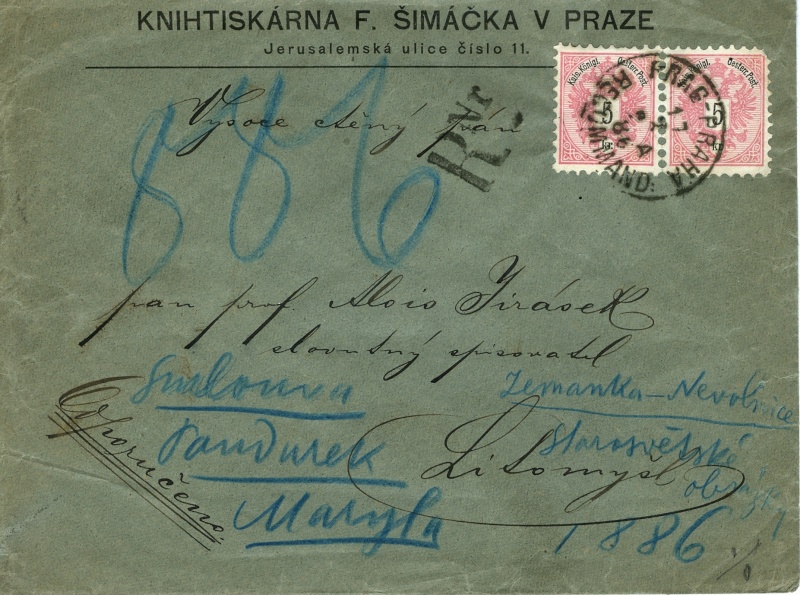 KNIHTISKÁRNA F. ŠIMÁČKA V PRAZE
Jerusalemská ulice číslo 11.
Kais. Königl. Oesterr. Post.
5
kr.
Kais. Königl. Oesterr. Post.
5
kr.
PRAG PRAHA
17
4
86
RECOMMAND:
R Nr
886
Vysoce ctěný pán
pan prof. Alois Jirásek
slovutný spisovatel
Litomyšl
Odporučeno.
Pandurek
Maryla
Zemanka - Nevolnice
Starosvětské
obrázky
1886